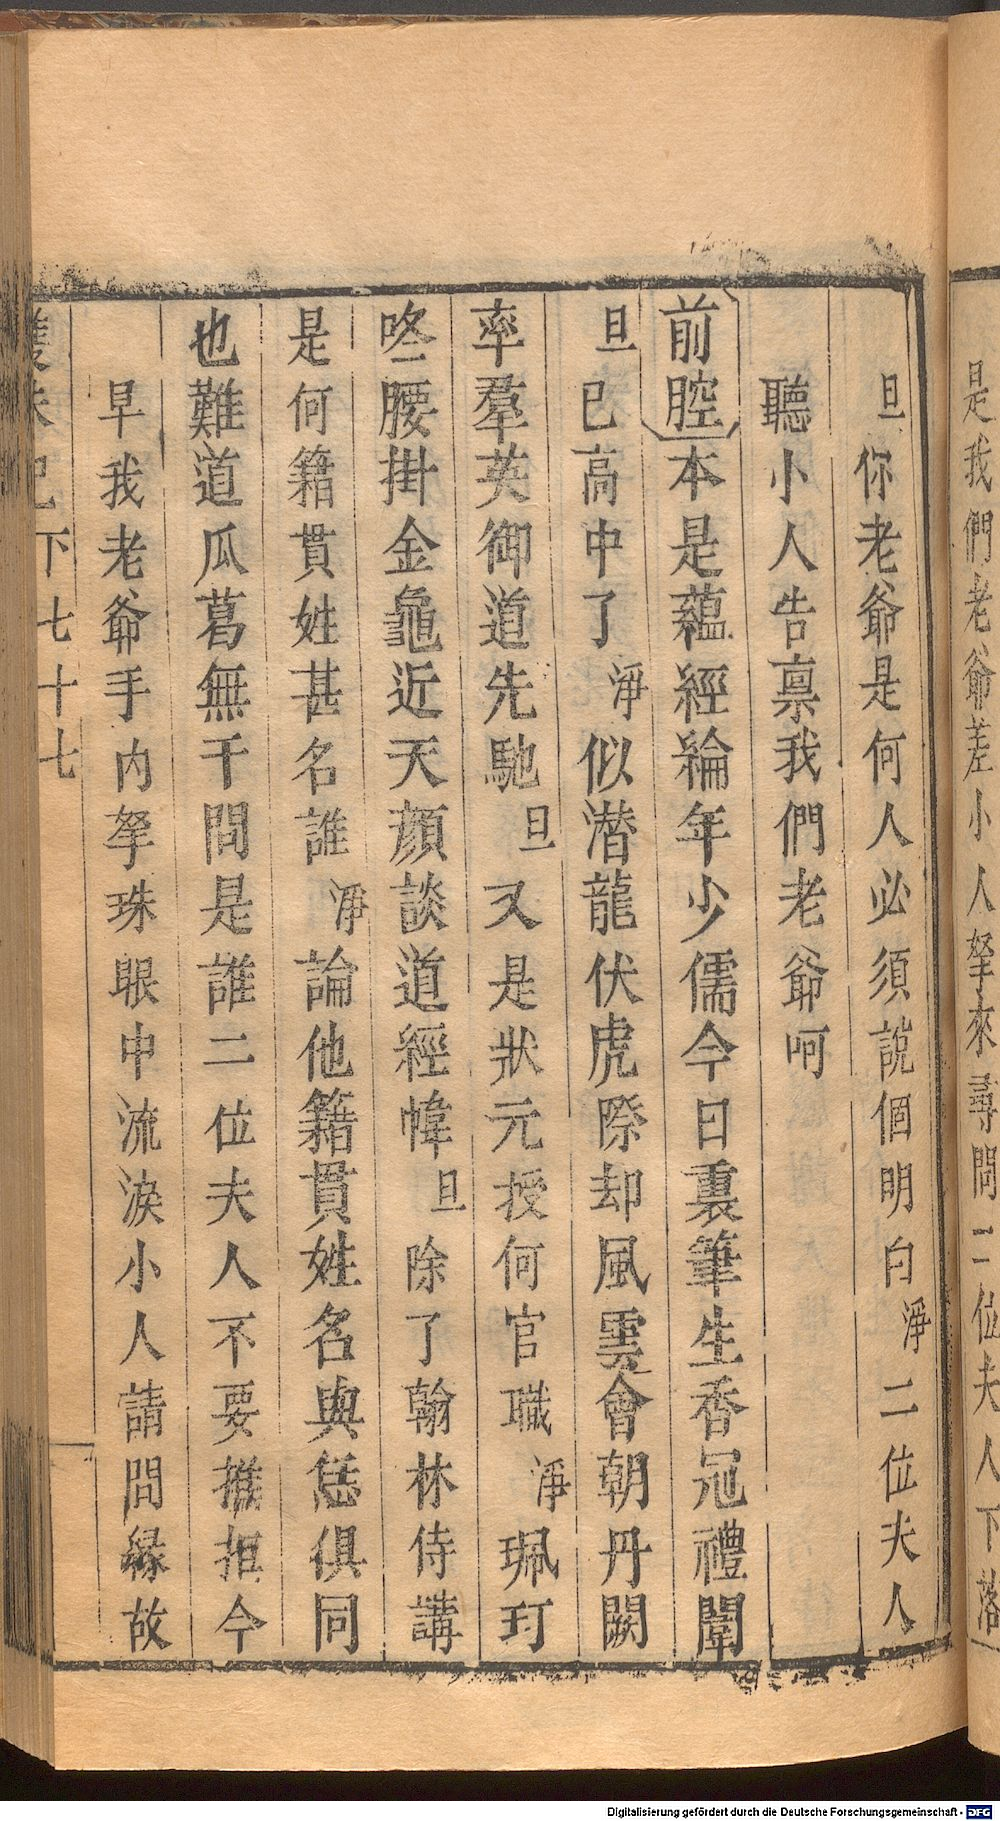 是我們老爺差小人拏來尋問二位夫人下落
旦你老爺是何人必須說個明白淨二位夫人
聽小人告禀我們老爺呵
前腔本是蘊經綸年少儒今日裏筆生香冠禮闈
旦已高中了淨似潛龍伏虎際却風雲會朝丹闕
率羣英御道先馳旦又是狀元授何官職淨珮玎
咚腰掛金龜近天顏談道經幃旦除了翰林侍講
是何籍貫姓甚名誰淨論他籍貫姓名與恁俱同
也難道瓜葛無干問是誰二位夫人不要推拒今
早我老爺手内拏珠眼中流淚小人請問緣故
雙珠記下七十七
Digitalisierung gefördert durch die Deutsche Forschungsgemeinschaft - DFG